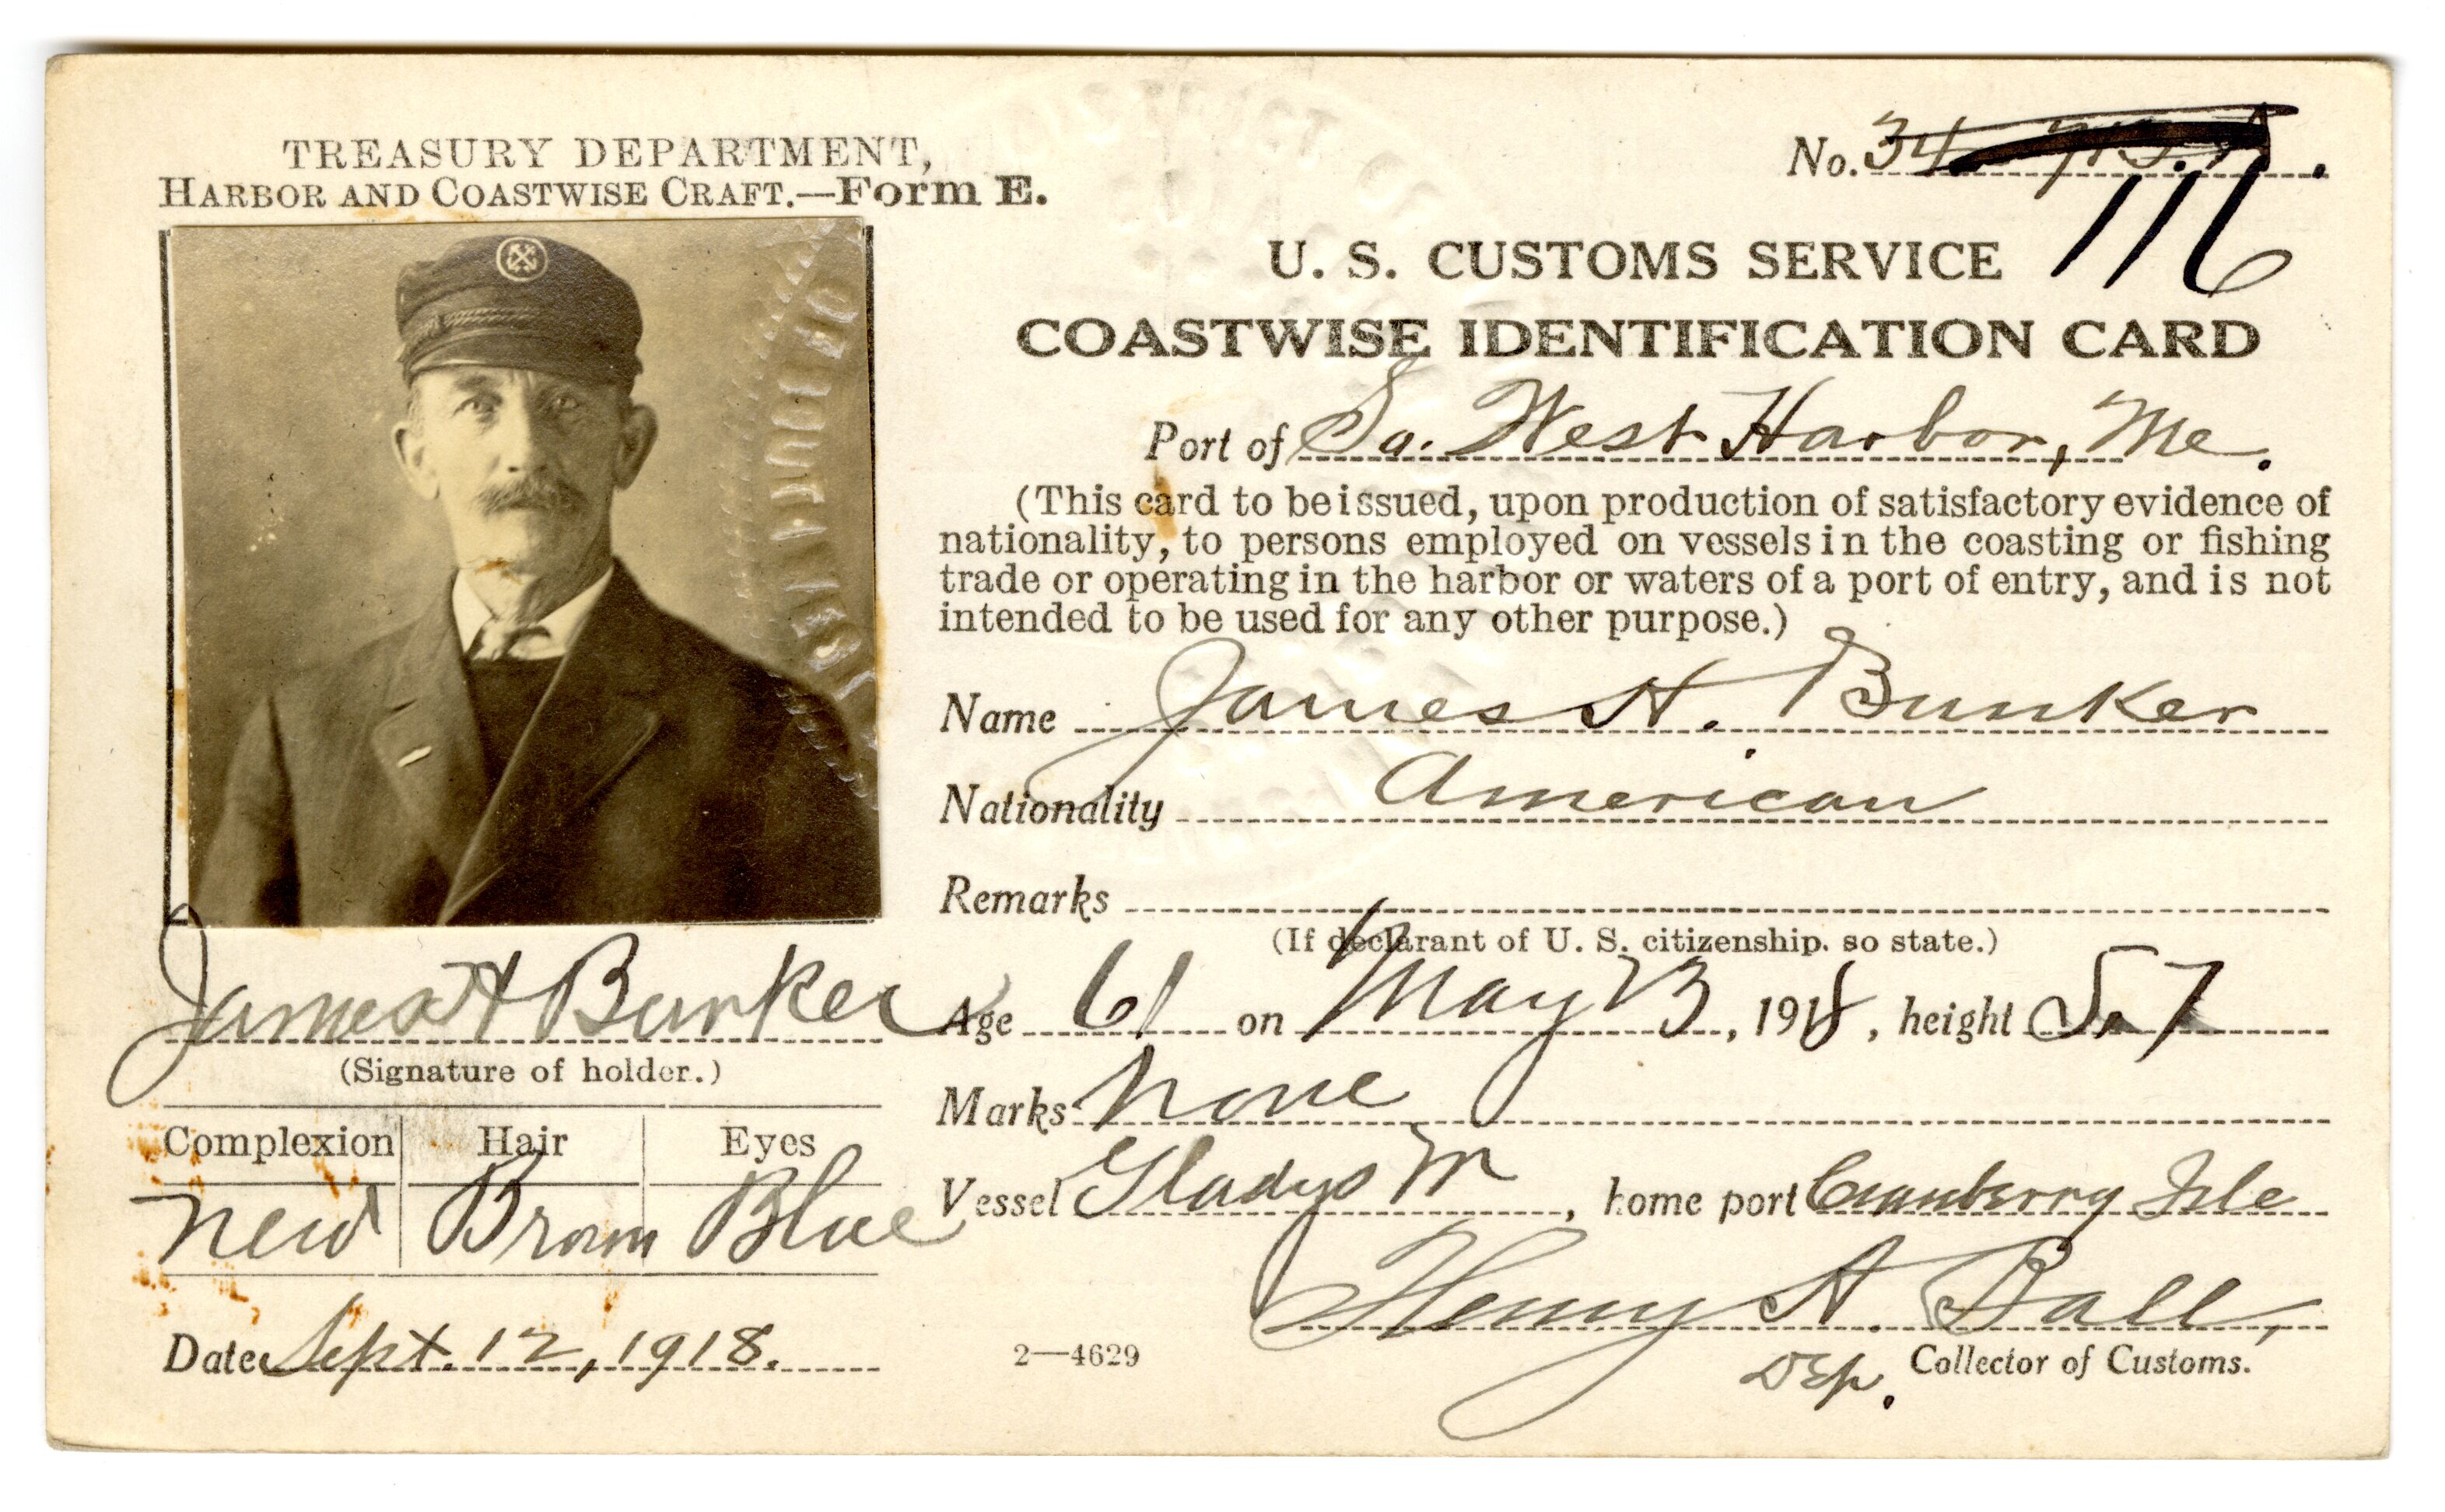 TREASURY DEPARTMENT,
HARBOR AND COASTWISE CRAFT.—Form E.
No. 34
116
U. S. CUSTOMS SERVICE
COASTWISE IDENTIFICATION CARD
Port of So. West Harbor, Me.
(This card to be issued, upon production of satisfactory evidence of
nationality, to persons employed on vessels in the coasting or fishing
trade or operating in the harbor or waters of a port of entry, and is not
intended to be used for any other purpose.)
Name James H. Bunker
Nationality American
Remarks
(If declarant of U. S. citizenship. so state.)
Age 61 on May 13, 1918, height 5.7
Marks: None
Vessel Gladys M, home port Cranberry Isle
Henry A. Ball,
Dep. Collector of Customs.
James H Bunker
(Signature of holder.)
Complexion Hair Eyes
Med Brown Blue
Date Sept. 12, 1918.
2—4629